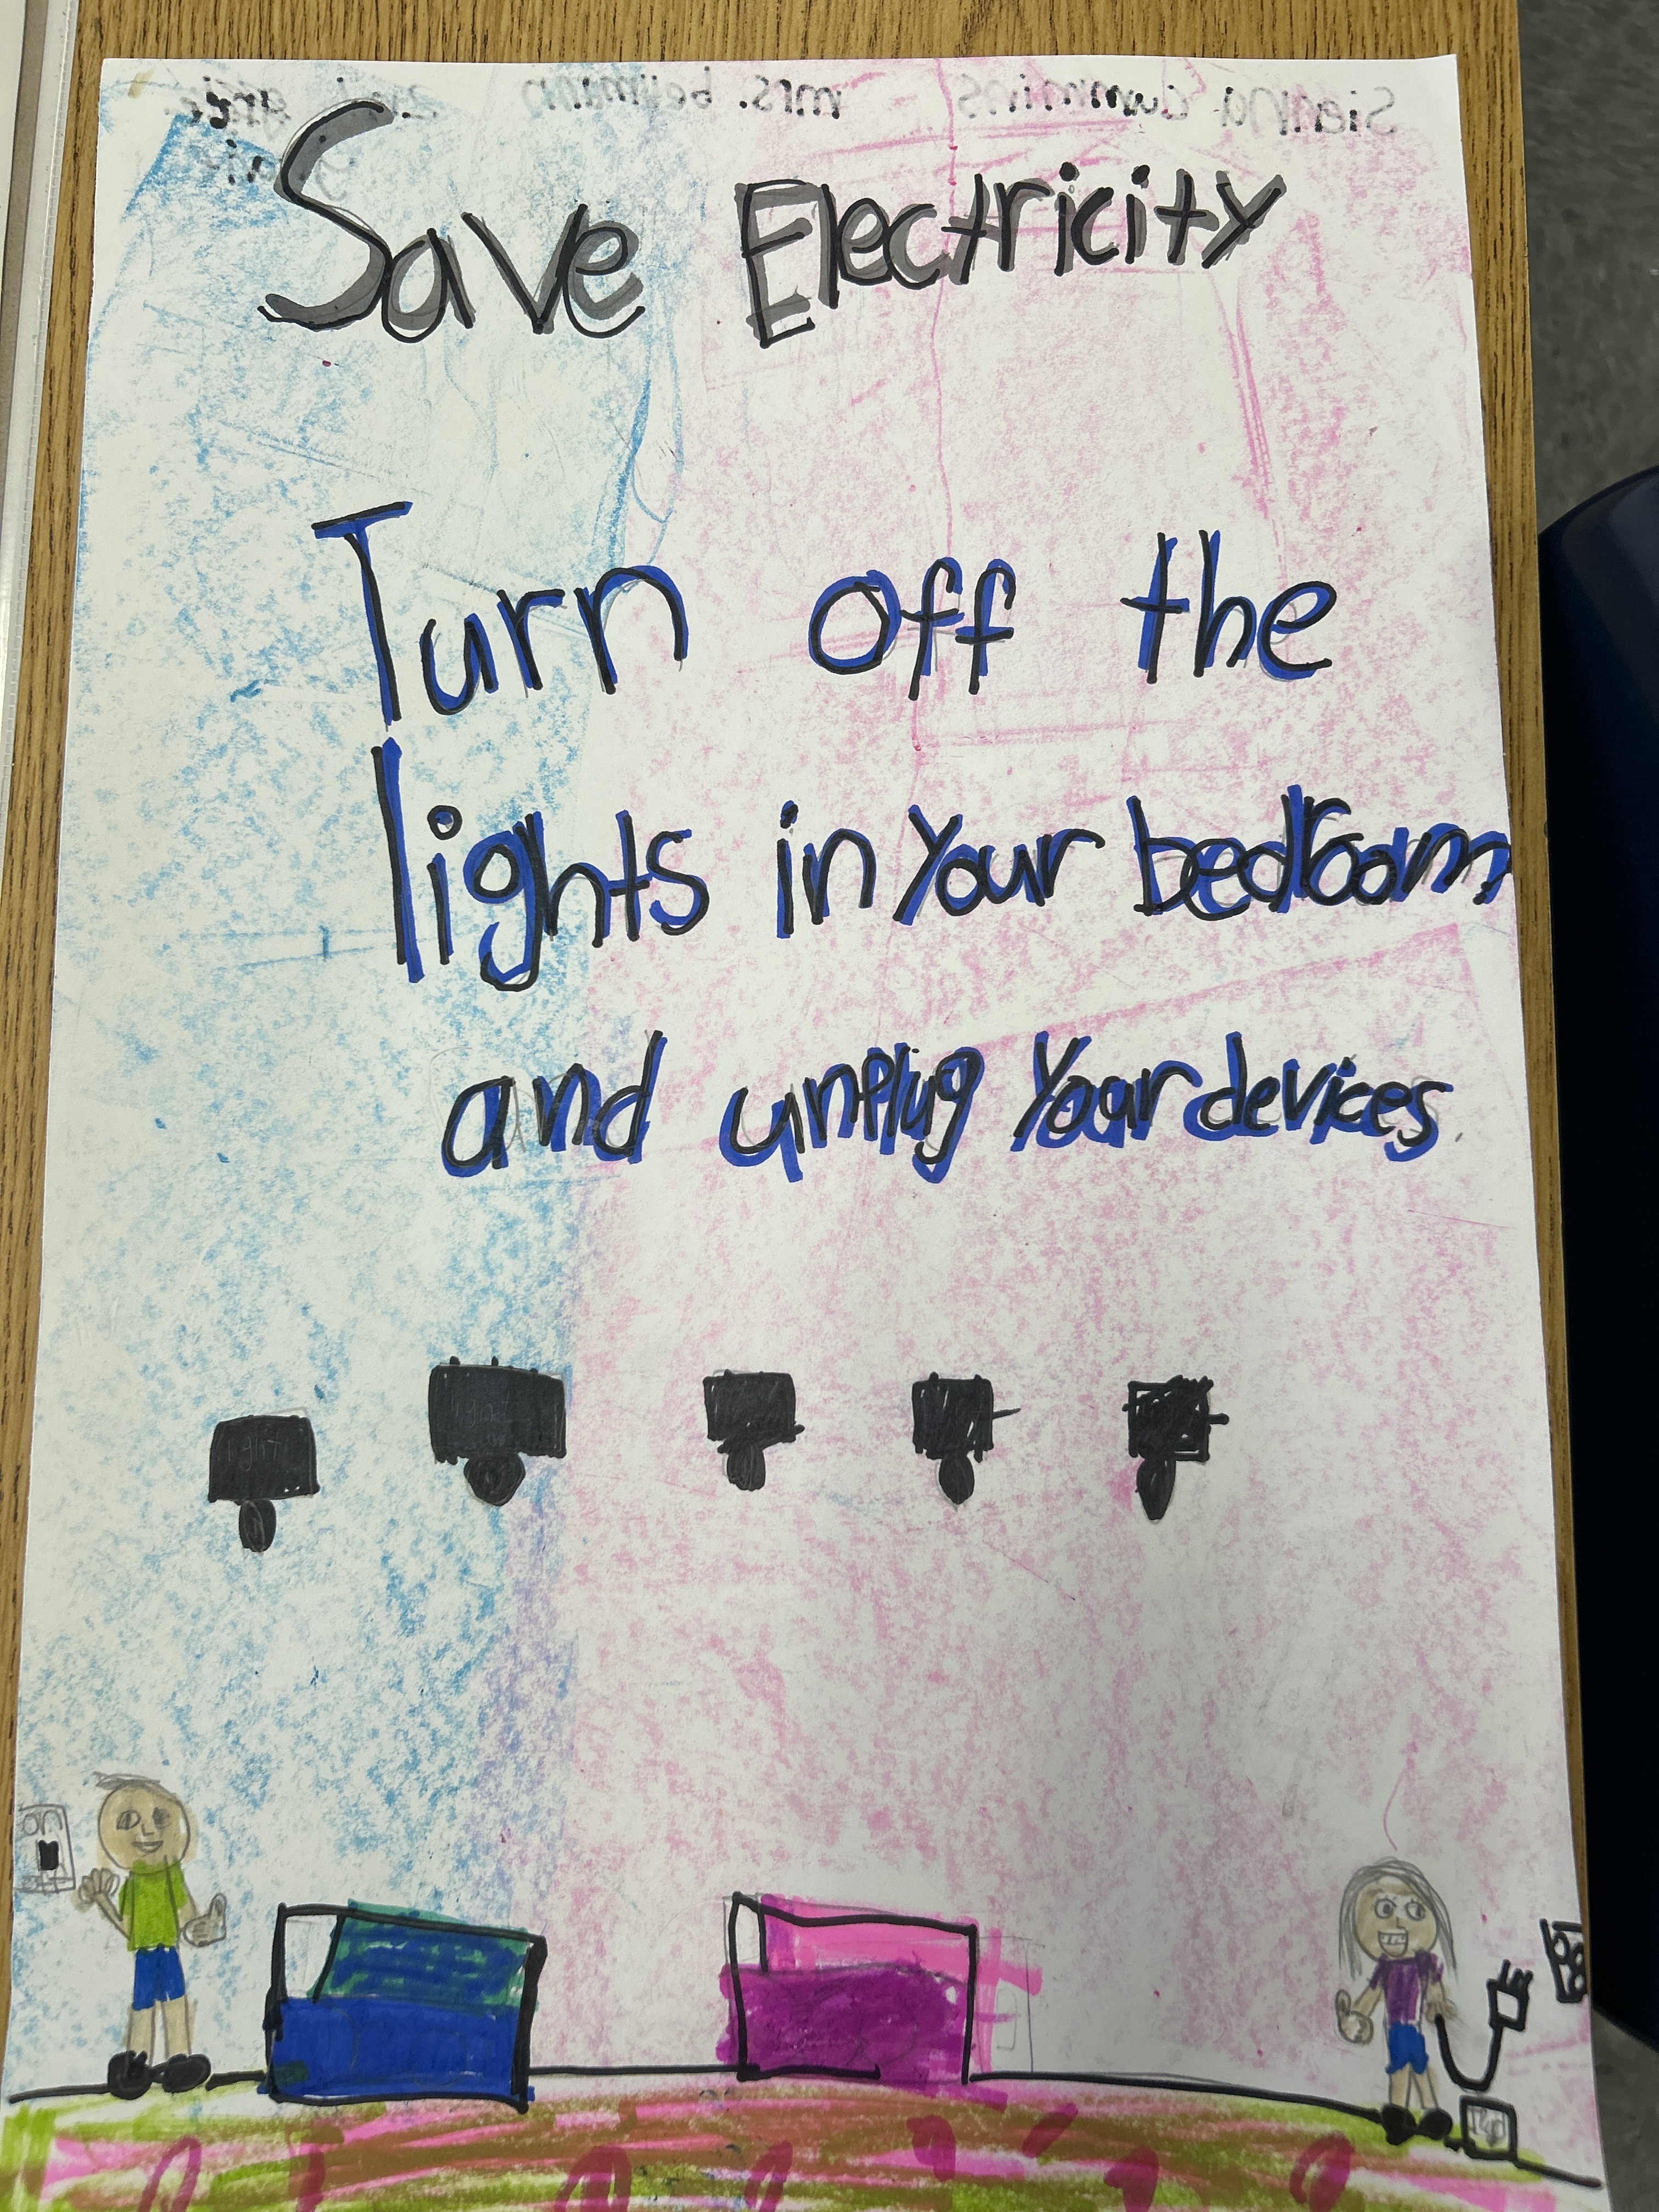 Save Electricity
Turn off the
lights in your bedroom
and unplug your devices
light
on
off